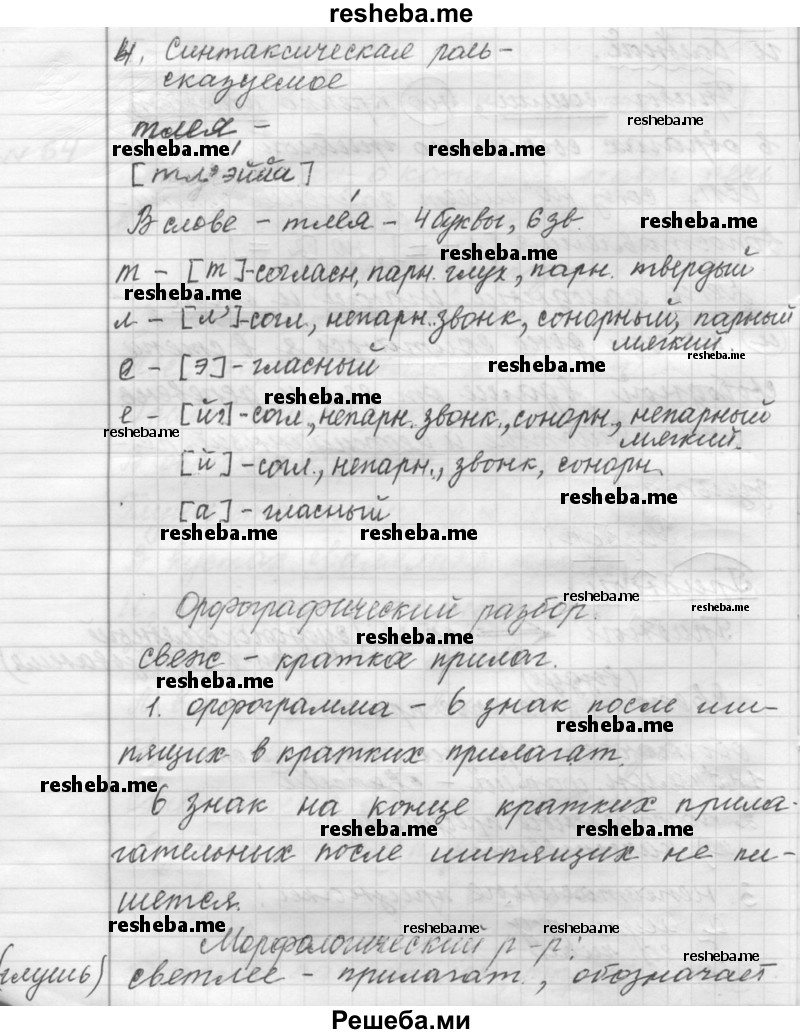 resheba.me
4. Синтаксическая роль -
сказуемое
тлея -
resheba.me resheba.me resheba.me
[тл'эййа]
В слове - тлея - 4 буквы, 6 зв. resheba.me
resheba.me
т - [т]-согласн, парн. глух, парн. твердый
resheba.me
л - [л']-согл, непарн. звонк, сонорный, парный
мягкий.
resheba.me resheba.me
е - [э] - гласный
resheba.me
е - [й']-согл, непарн. звонк., сонорн., непарный
resheba.me мягкий.
[й] - согл., непарн., звонк, сонорн.
resheba.me
[а] - гласный
resheba.me resheba.me
Орфографический разбор.
resheba.me resheba.me
resheba.me
свеж - краткое прилаг.
resheba.me
1. орфограмма - ь знак после ши-
resheba.me
пящих в кратких прилагат.
resheba.me
ь знак на конце кратких прила-
resheba.me resheba.me
гательных после шипящих не пи-
шется.
resheba.me resheba.me resheba.me
Морфологический р-р:
resheba.me
(глушь) светлее - прилагат., обозначает
Решеба.ми